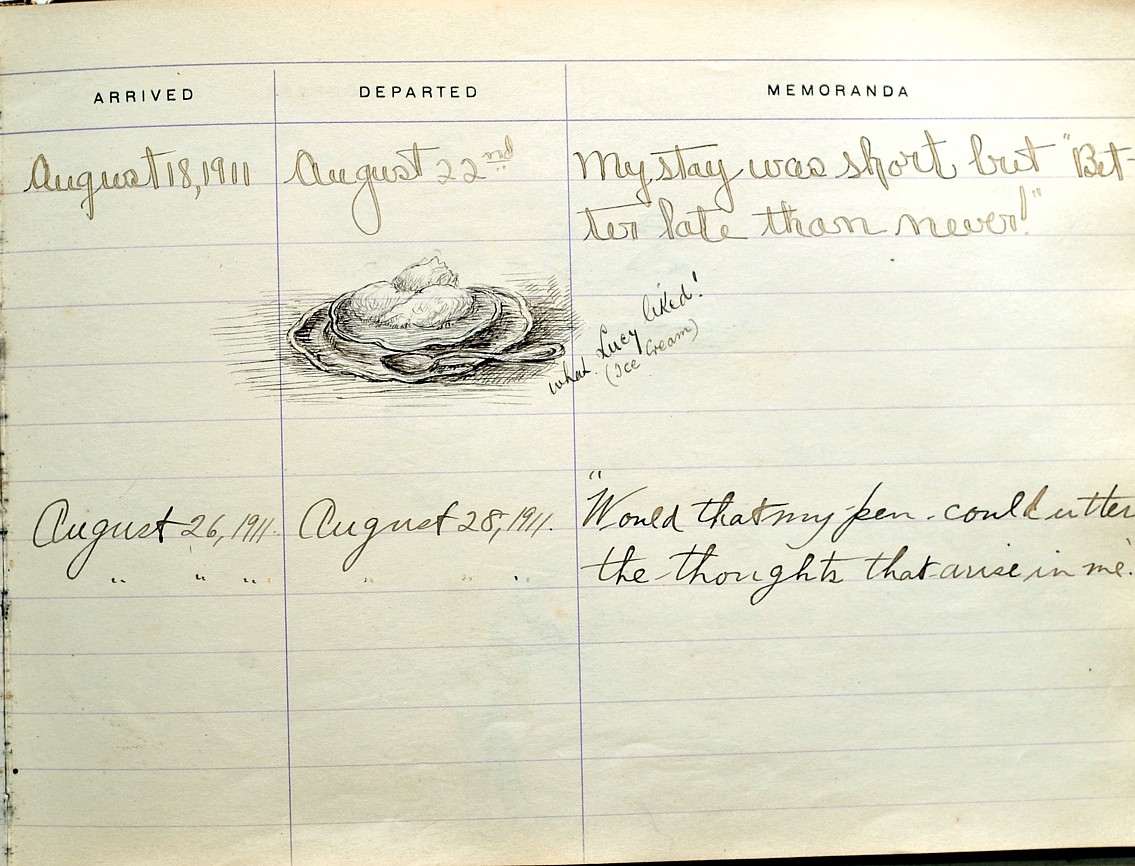 ARRIVED DEPARTED MEMORANDA
August 18, 1911 August 22nd My stay was short but "Bet-
ter late than never!"
what Lucy liked!
(Ice Cream)
August 26, 1911. August 28, 1911. "Would that my pen could utter
" " " " " " the thoughts that arise in me."